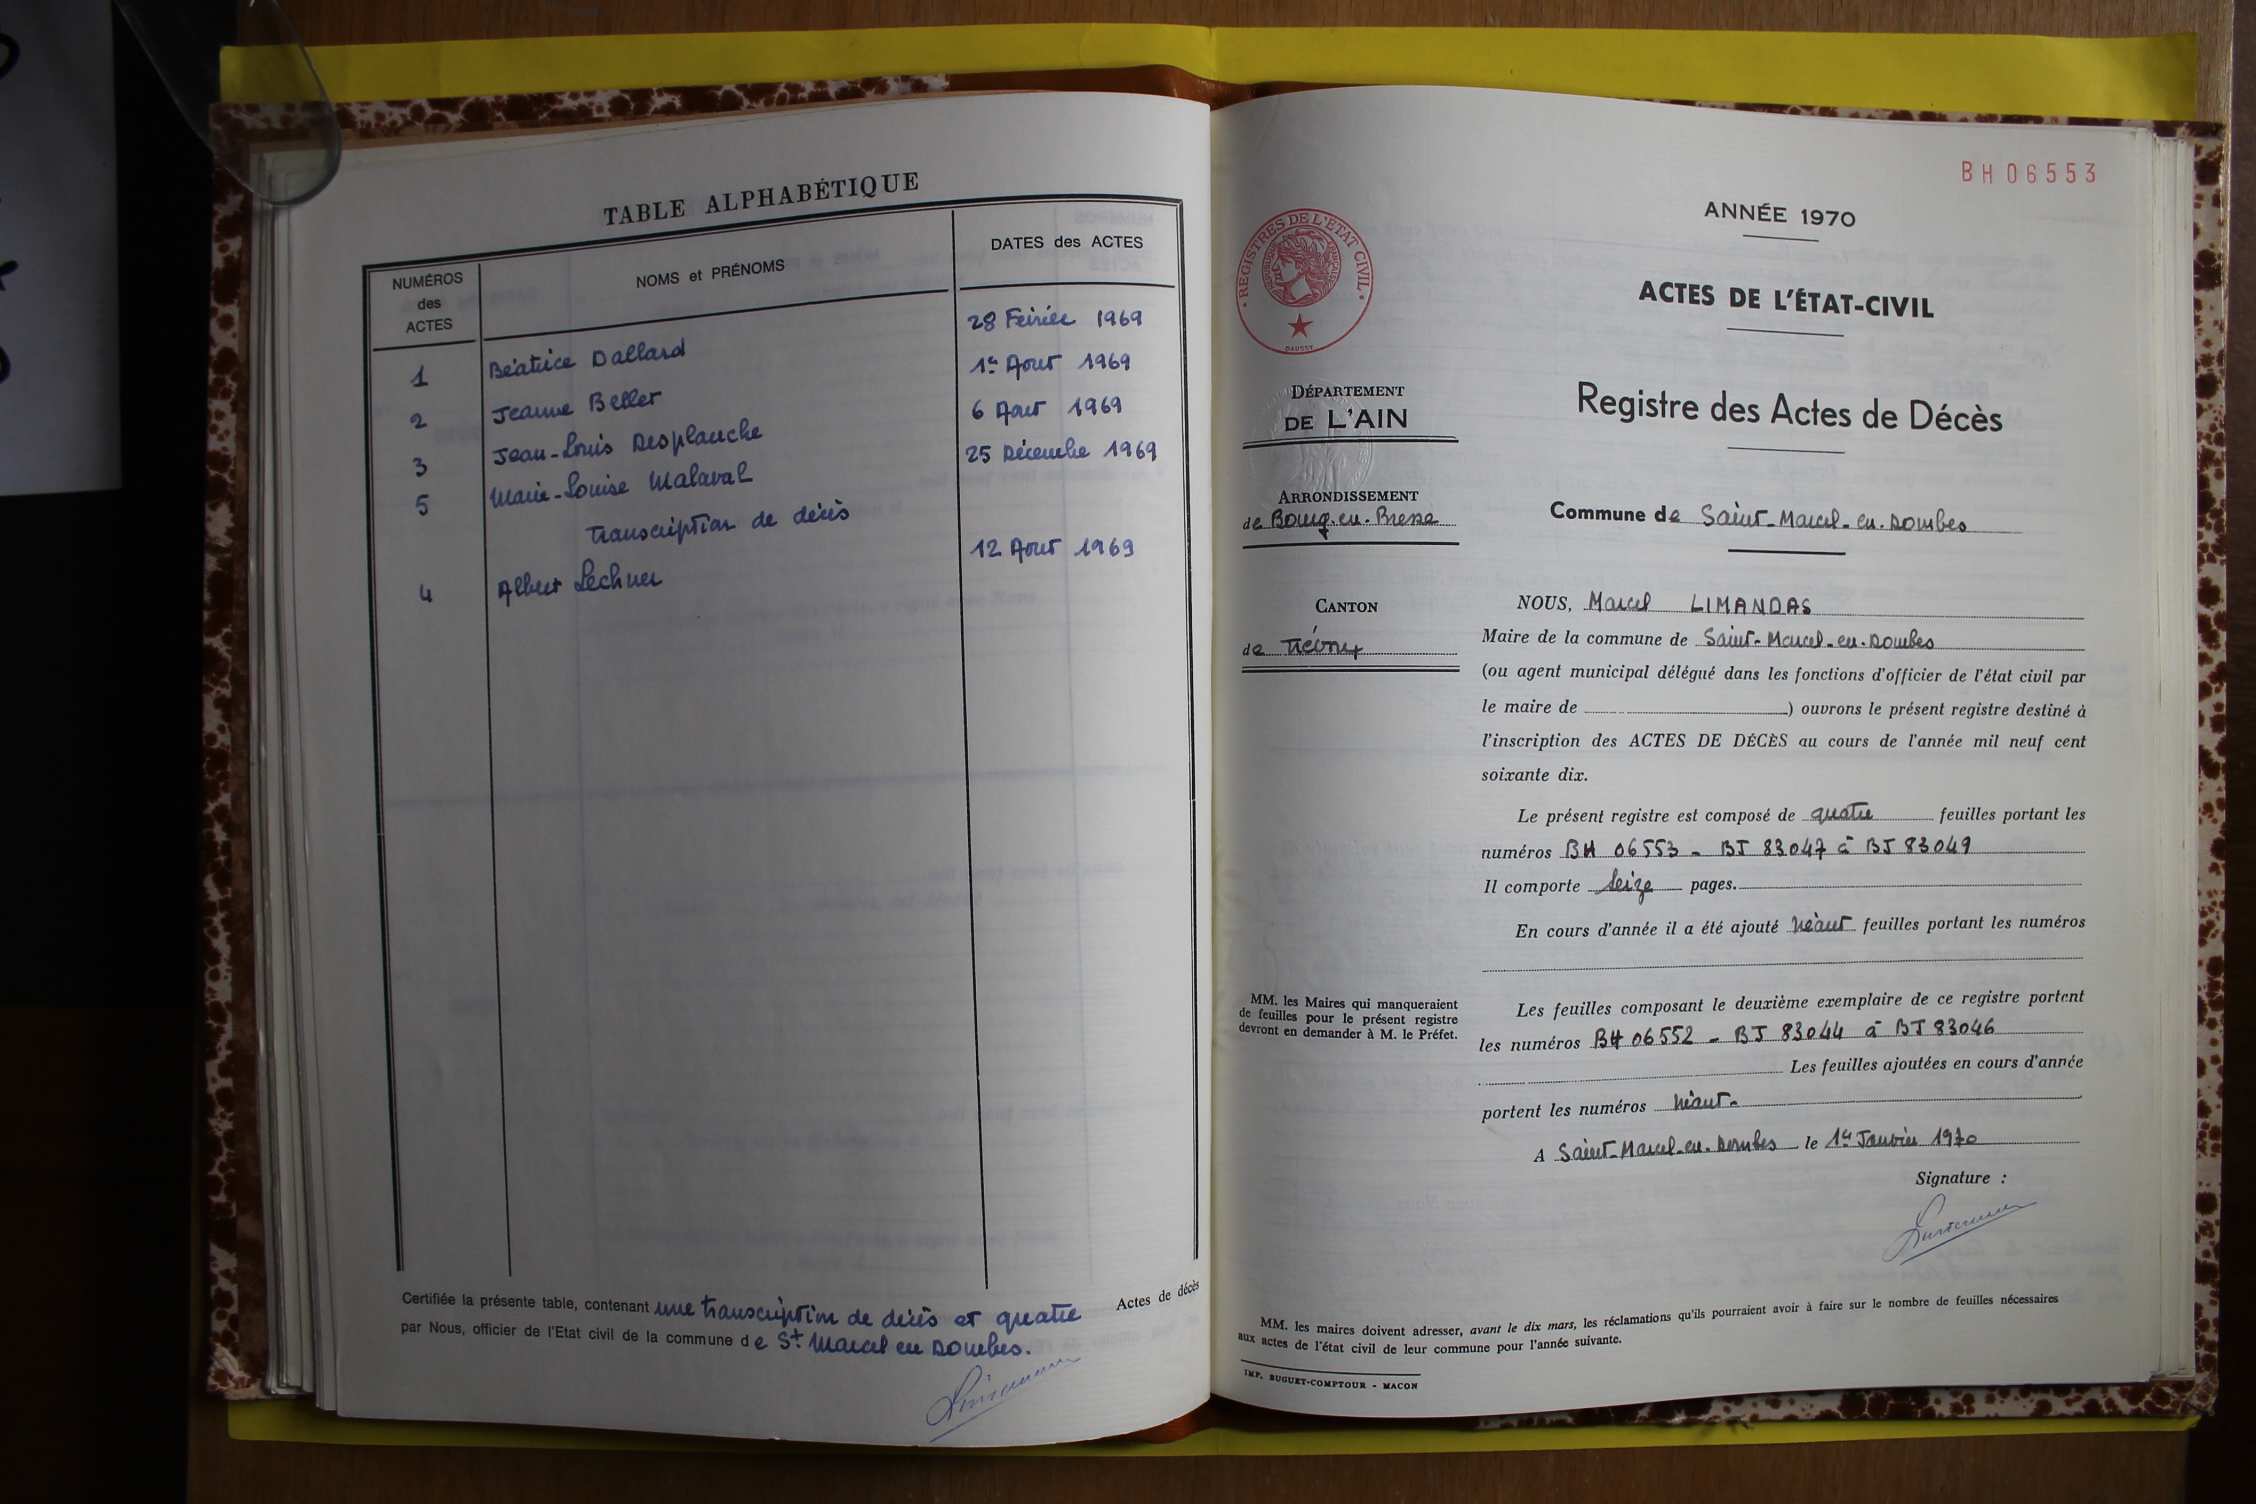 TABLE ALPHABÉTIQUE
NUMÉROS
des
ACTES
NOMS et PRÉNOMS
DATES des ACTES
1 Béatrice Dallard 28 Février 1969
2 Jeanne Beller 1er Aout 1969
3 Jean-Louis Desplanche 6 Aout 1969
5 Marie-Louise Malaval 25 Décembre 1969
Transcription de décès
4 Albert Lechner 12 Aout 1969
Certifiée la présente table, contenant une transcription de décès et quatre Actes de décès
par Nous, officier de l'Etat civil de la commune de St Marcel en Dombes.
BH06553
ANNÉE 1970
• REGISTRES DE L'ÉTAT CIVIL •
RÉPUBLIQUE FRANÇAISE
DAUSSY
ACTES DE L'ÉTAT-CIVIL
DÉPARTEMENT
DE L'AIN
Registre des Actes de Décès
ARRONDISSEMENT
de Bourg-en-Bresse
Commune de Saint-Marcel-en-Dombes
CANTON
de Trévoux
NOUS, Marcel LIMANDAS
Maire de la commune de Saint-Marcel-en-Dombes
(ou agent municipal délégué dans les fonctions d'officier de l'état civil par
le maire de ) ouvrons le présent registre destiné à
l'inscription des ACTES DE DÉCÈS au cours de l'année mil neuf cent
soixante dix.
Le présent registre est composé de quatre feuilles portant les
numéros BH 06553 - BJ 83047 à BJ 83049
Il comporte seize pages.
En cours d'année il a été ajouté néant feuilles portant les numéros
MM. les Maires qui manqueraient
de feuilles pour le présent registre
devront en demander à M. le Préfet.
Les feuilles composant le deuxième exemplaire de ce registre portent
les numéros BH 06552 - BJ 83044 à BJ 83046
Les feuilles ajoutées en cours d'année
portent les numéros néant-
A Saint-Marcel-en-Dombes le 1er Janvier 1970
Signature :
MM. les maires doivent adresser, avant le dix mars, les réclamations qu'ils pourraient avoir à faire sur le nombre de feuilles nécessaires
aux actes de l'état civil de leur commune pour l'année suivante.
IMP. BUGUET-COMPTOUR - MACON